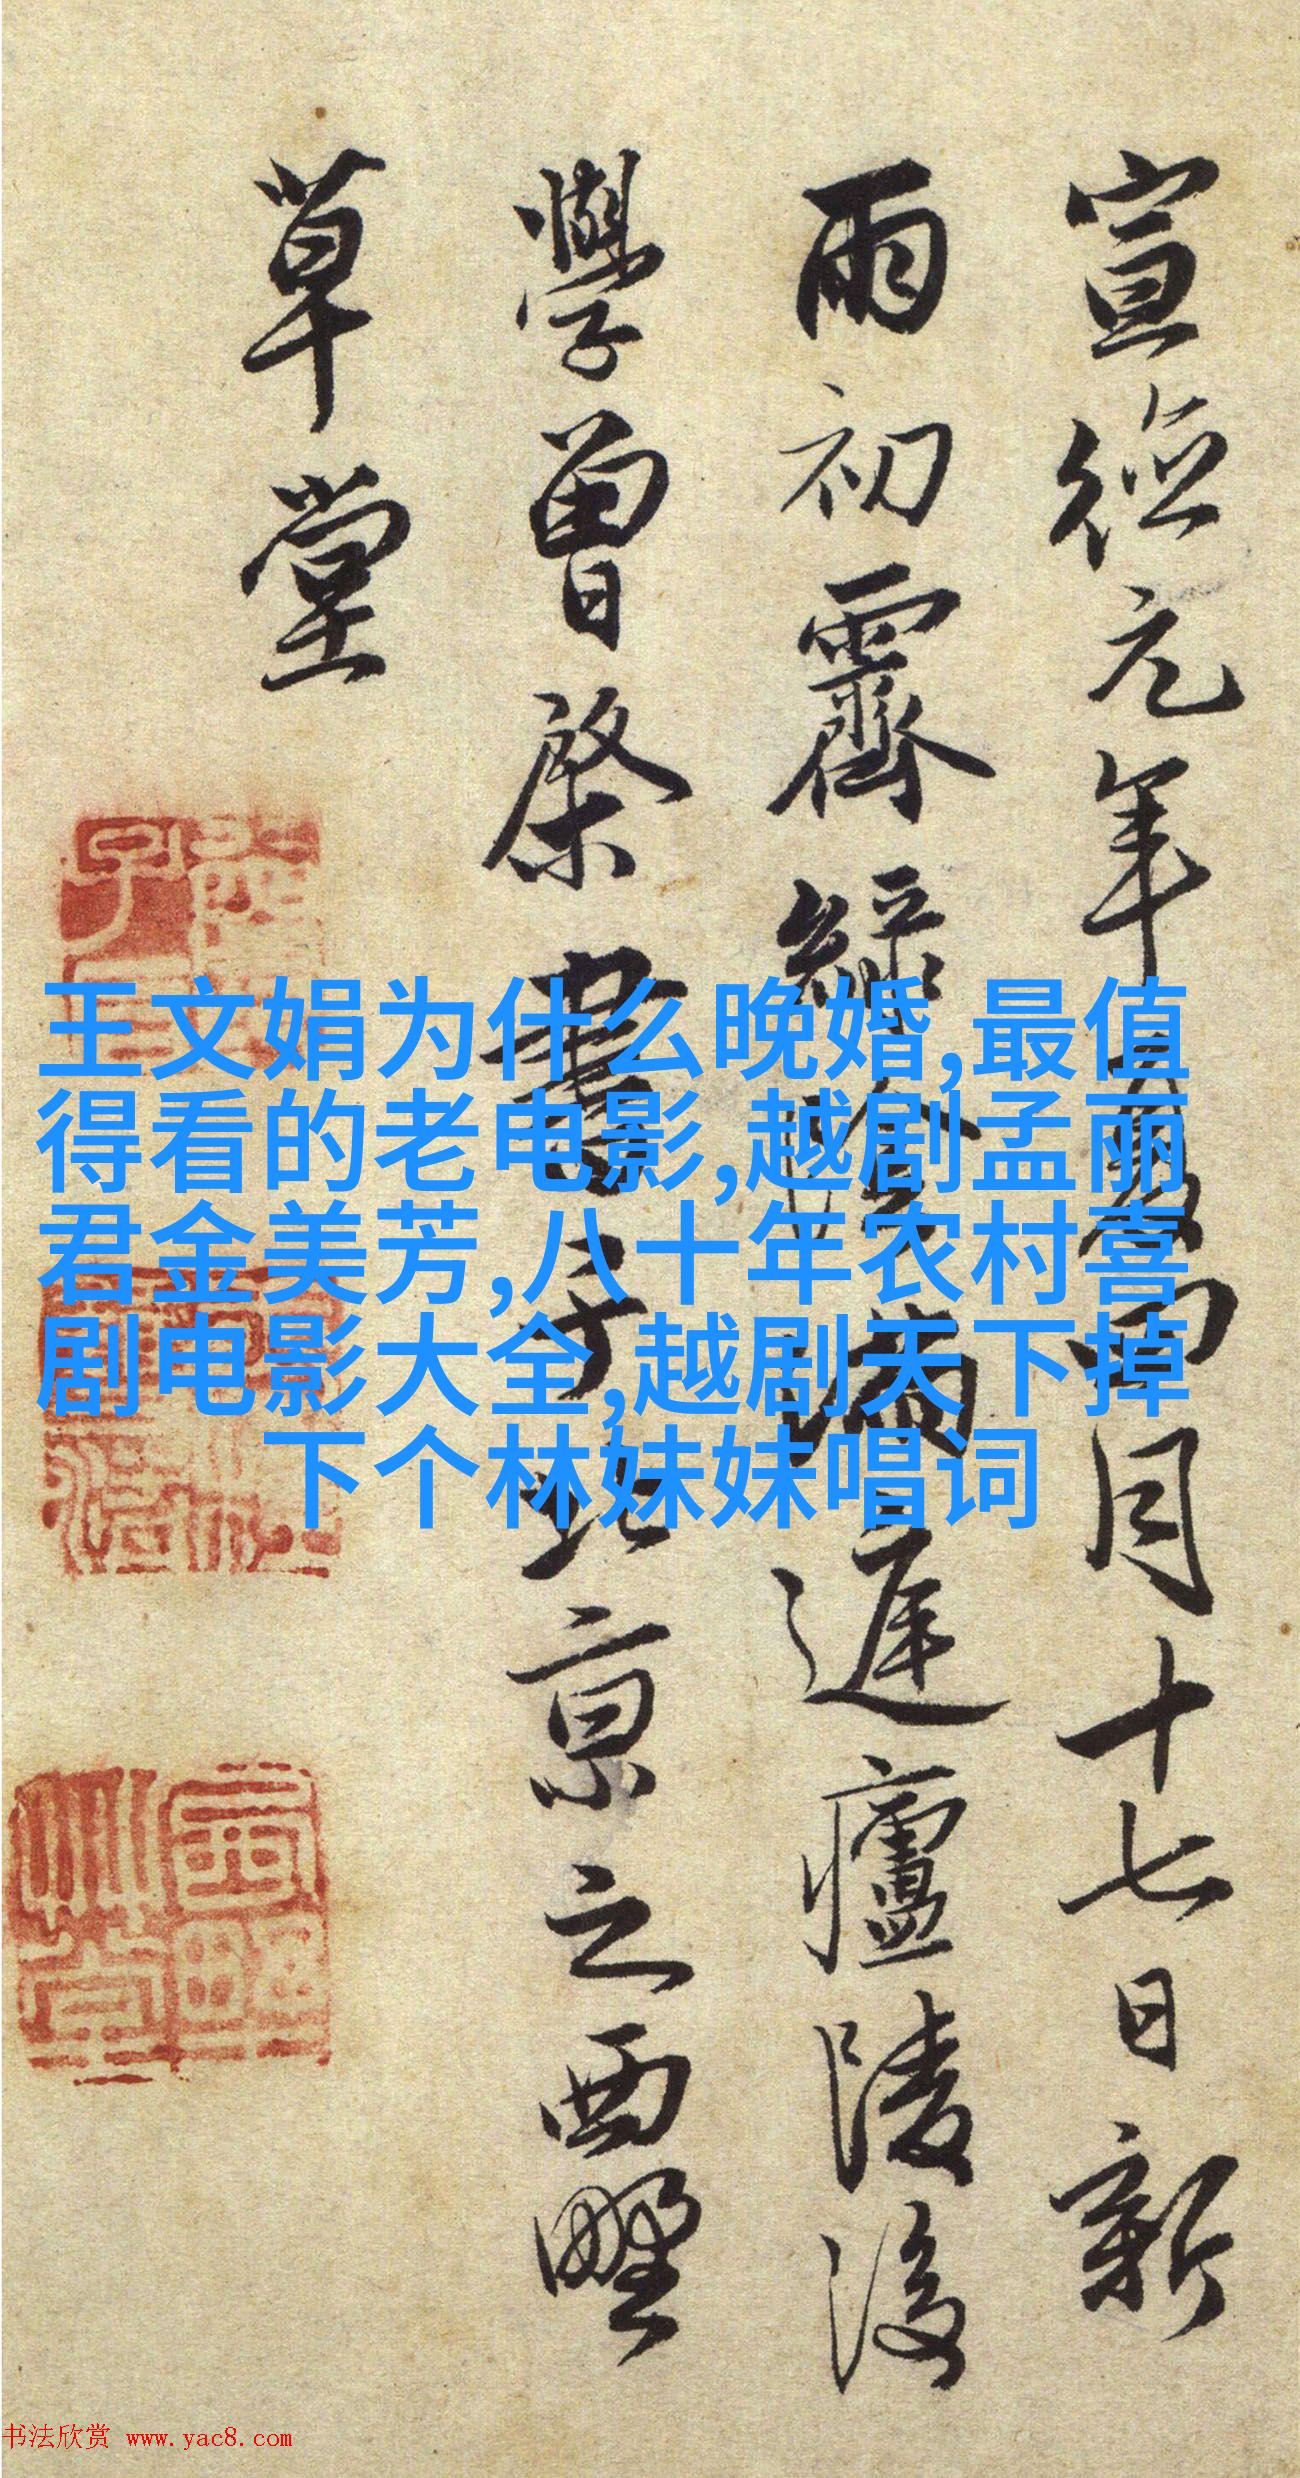 宣德元年夏四月十七日新
雨初霽綠陰滿庭廬陵後
學曾棨書于北京之西墅
草堂
王文娟为什么晚婚,最值
得看的老电影,越剧孟丽
君金美芳,八十年农村喜
剧电影大全,越剧天下掉
下个林妹妹唱词
书法欣赏 www.yac8.com